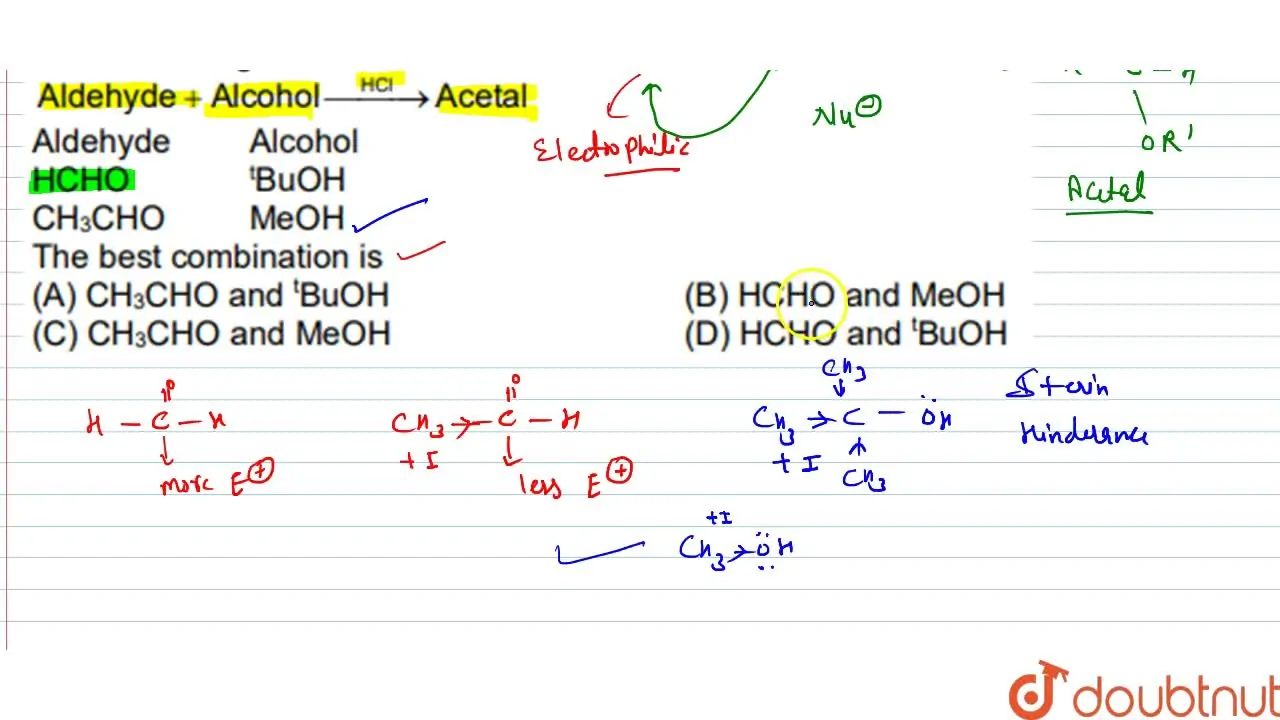 HCl
Aldehyde + Alcohol ⟶ Acetal
Aldehyde Alcohol
HCHO ᵗBuOH
CH₃CHO MeOH
The best combination is
(A) CH₃CHO and ᵗBuOH (B) HCHO and MeOH
(C) CH₃CHO and MeOH (D) HCHO and ᵗBuOH
Electrophilic
Nu⊖
OR'
Acetal
O
H – C – H
more E⊕
O
CH₃ – C – H
+I
less E⊕
CH₃
CH₃ → C – ÖH
+I
CH₃
Sterin
Hinderance
+I
CH₃ → ÖH
doubtnut